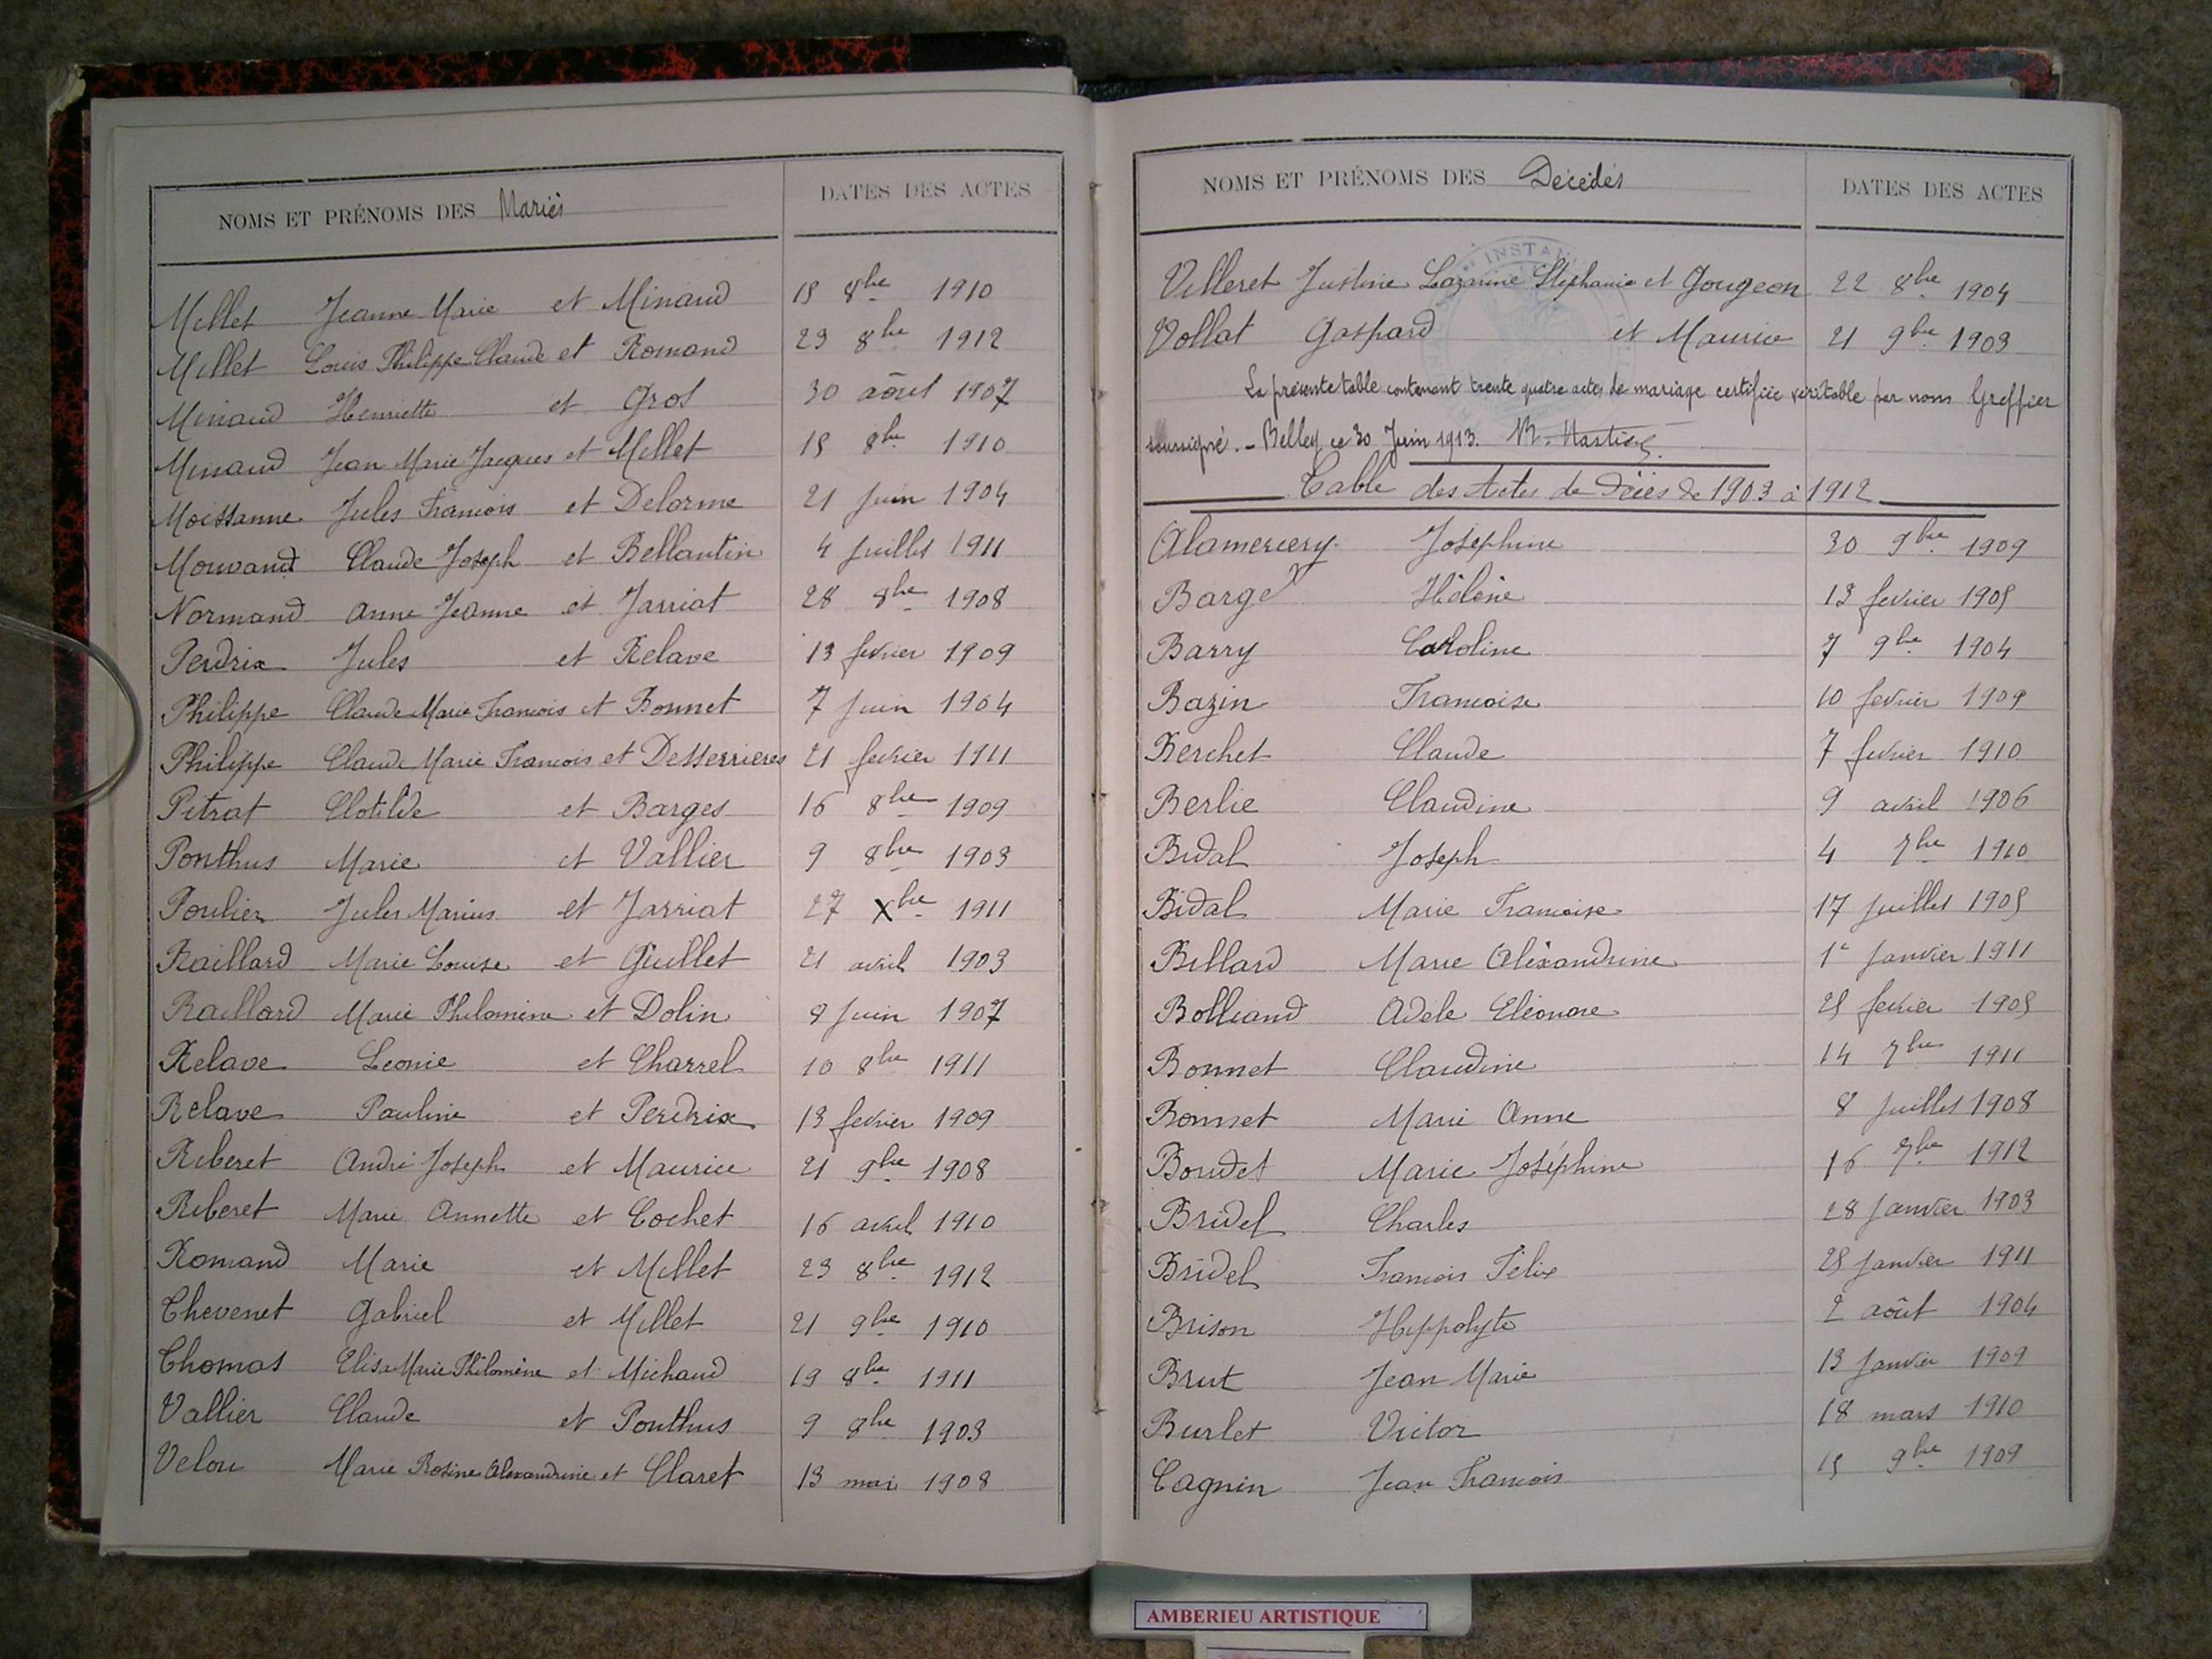 NOMS ET PRÉNOMS DES Mariés DATES DES ACTES
Millet Jeanne Marie et Minaud 15 8bre 1910
Millet Louis Philippe Claude et Romand 23 8bre 1912
Minaud Henriette et Gros 30 août 1907
Minaud Jean Marie Jacques et Millet 15 8bre 1910
Moissanne Jules Francois et Delorme 21 Juin 1904
Claude Joseph et Bellantin 4 Juillet 1911
Normand Anne Jeanne et Jarriat 28 8bre 1908
Perdrix Jules et Relave 13 fevrier 1909
Philippe Claude Marie Francois et Bonnet 7 Juin 1904
Philippe Claude Marie Francois et Desserrieres 21 fevrier 1911
Pitrat Clotilde et Barges 16 8bre 1909
Ponthus Marie et Vallier 9 8bre 1903
Poulier Jules Marius et Jarriat 27 Xbre 1911
Raillard Marie Louise et Guillet 21 avril 1903
Raillard Marie Philomène et Dolin 8 Juin 1907
Relave Leonie et Charrel 10 8bre 1911
Relave Pauline et Perdrix 13 fevrier 1909
Riberet André Joseph et Maurice 21 9bre 1908
Riberet Marie Annette et Cochet 16 avril 1910
Romand Marie et Millet 23 8bre 1912
Thevenet Gabriel et Millet 21 9bre 1910
Thomas Elisa Marie Philomène et Michaud 19 8bre 1911
Vallier Claude et Ponthus 9 8bre 1903
Velou Marie Rosine Alexandrine et Claret 13 mai 1908
NOMS ET PRÉNOMS DES Décédés DATES DES ACTES
INSTAN
Villeret Justine Lazarine Stephanie et Gougeon 22 8bre 1904
Vollat Gaspard et Maurice 21 9bre 1903
La présente table contenant trente quatre actes de mariage certifiée véritable par nous Greffier
soussigné. – Belley ce 30 Juin 1913.
Table des Actes de Décès de 1903 à 1912
Alamercery Joséphine 30 9bre 1909
Barge Hélène 13 fevrier 1905
Barry Caroline 7 9bre 1904
Bazin Francoise 10 fevrier 1909
Berchet Claude 7 fevrier 1910
Berlie Claudine 9 avril 1906
Bidal Joseph 4 7bre 1910
Bidal Marie Francoise 17 Juillet 1905
Billard Marie Alexandrine 1er Janvier 1911
Bolliand Adele Eléonore 25 fevrier 1905
Bonnet Claudine 14 7bre 1911
Bonnet Marie Anne 8 Juillet 1908
Boudet Marie Joséphine 16 7bre 1912
Bridel Charles 28 Janvier 1903
Bridel Francois Félix 25 Janvier 1911
Brison Hippolyte 2 août 1904
Brut Jean Marie 13 Janvier 1909
Burlet Victor 18 mars 1910
Cagnin Jean Francois 15 9bre 1909
AMBERIEU ARTISTIQUE